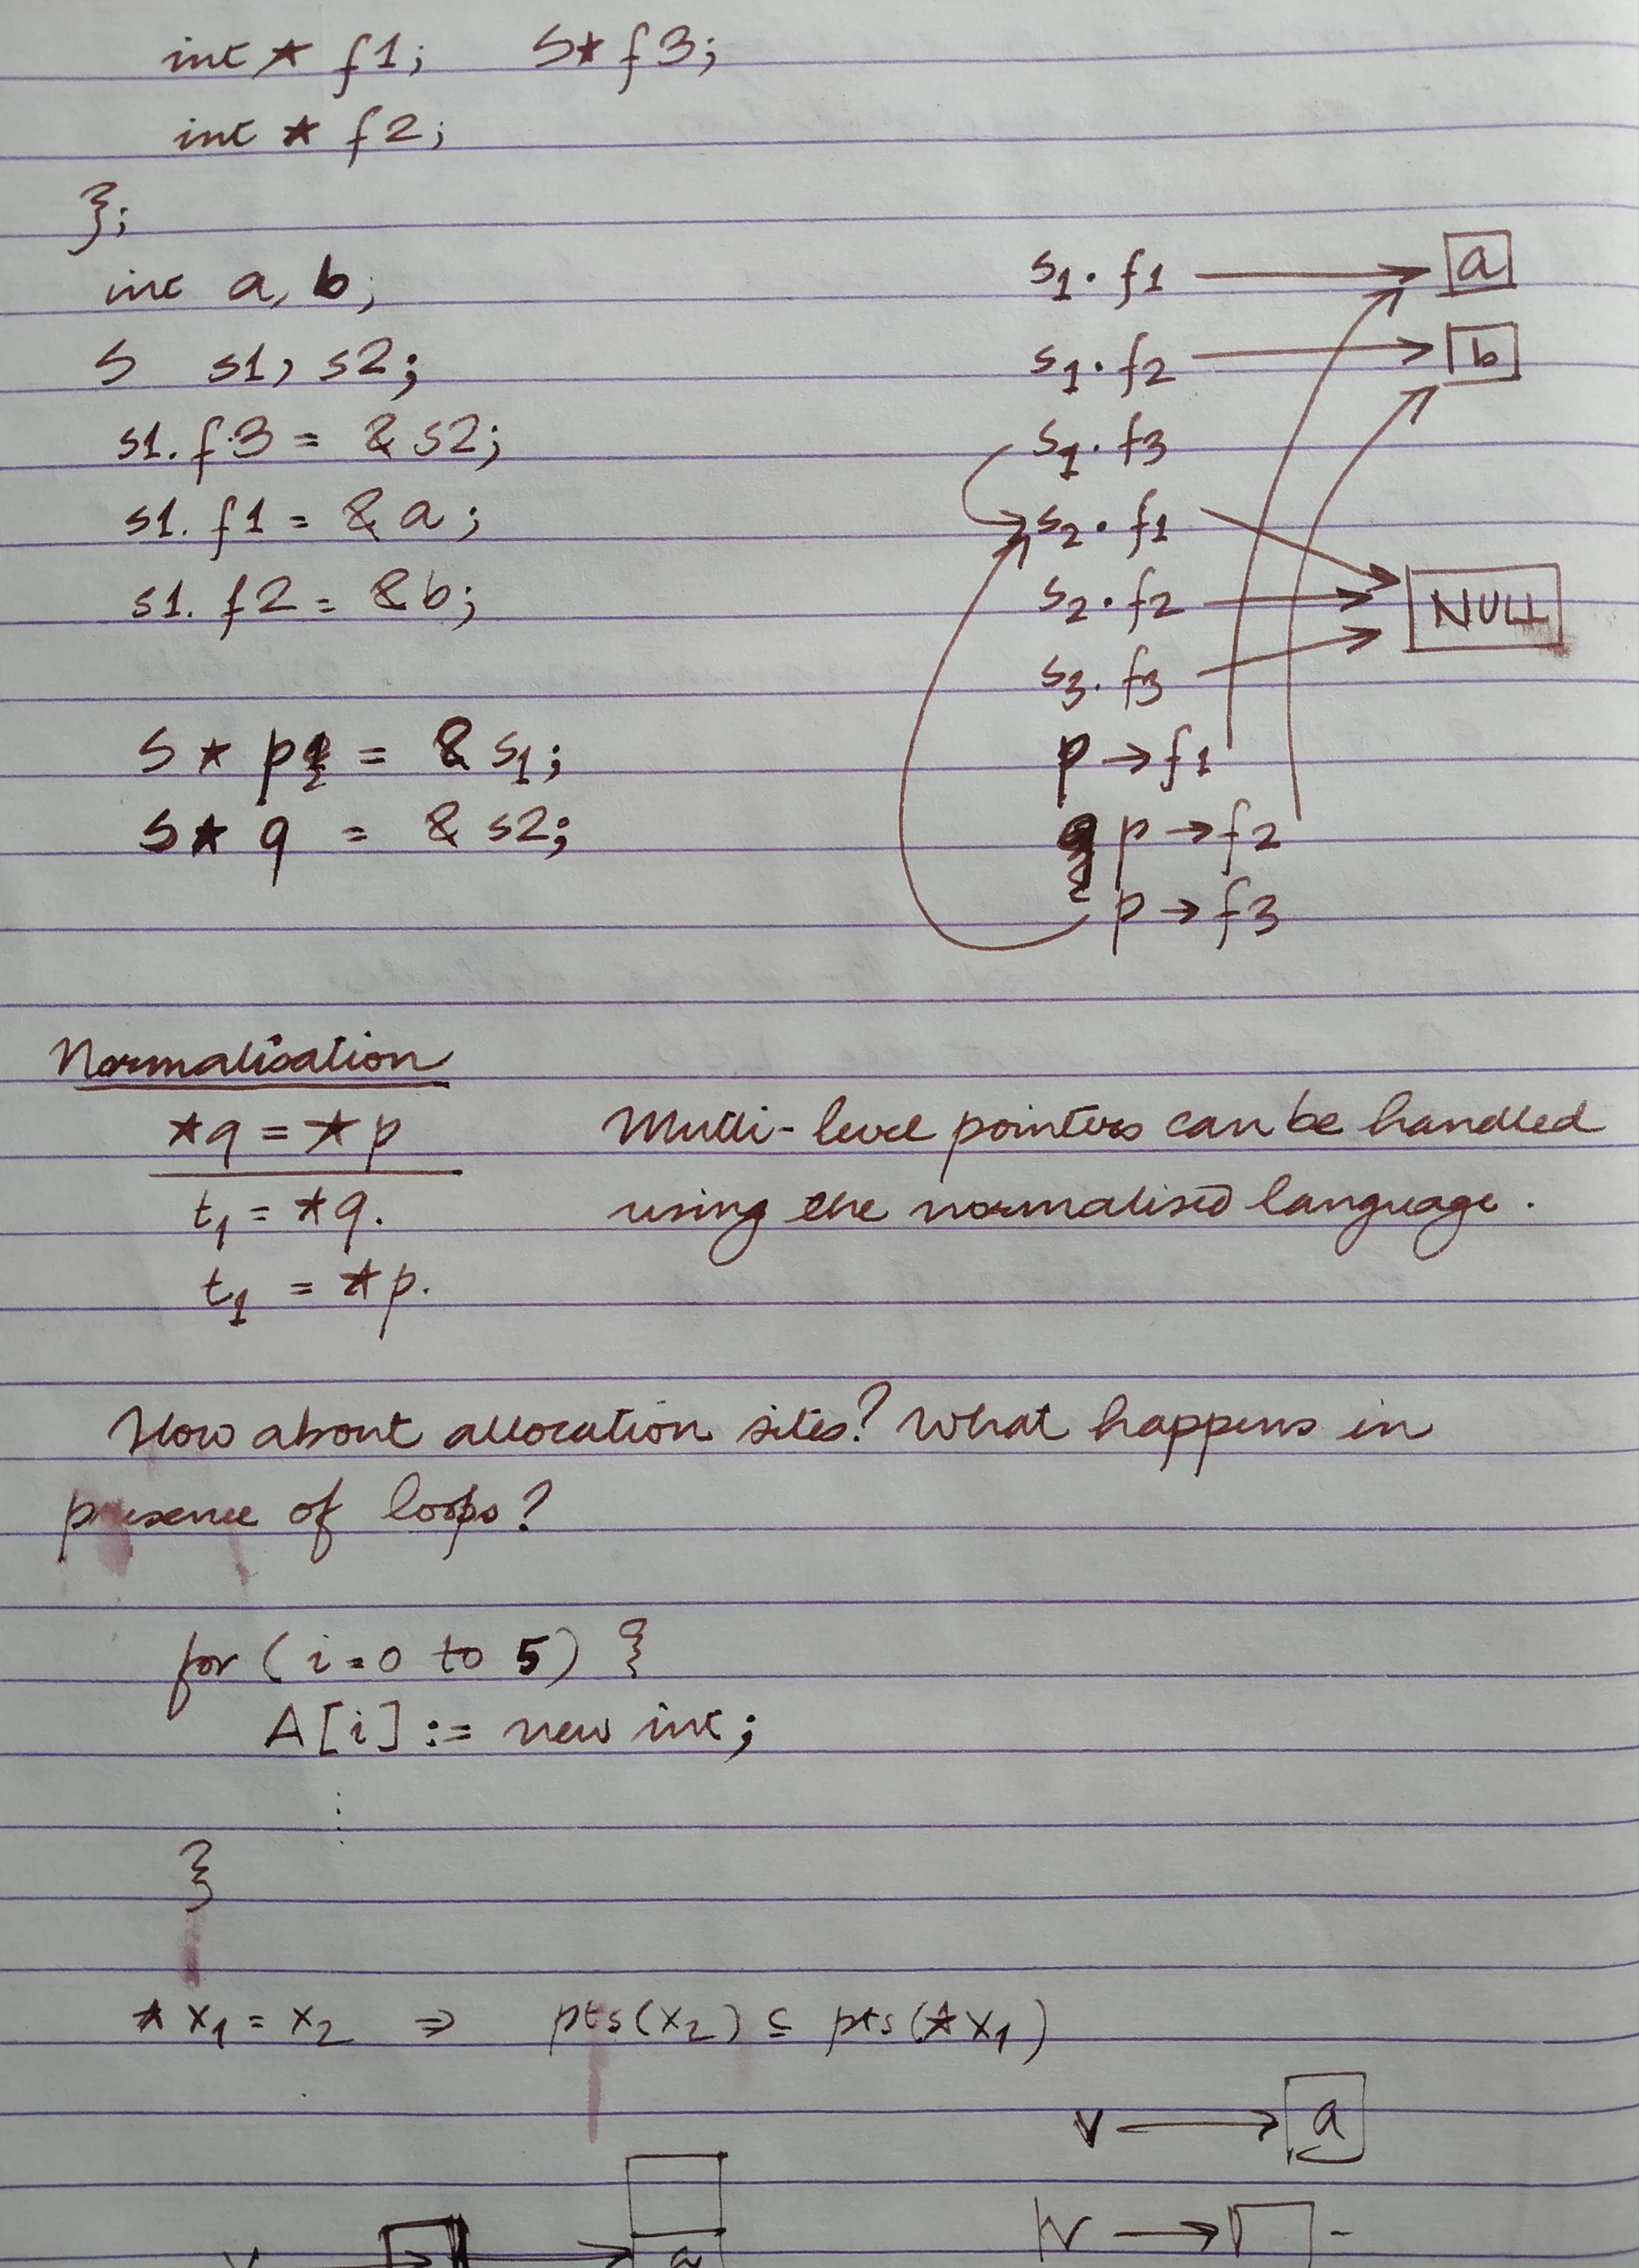 int * f1; S* f3;
int * f2;
};
int a, b;
S s1, s2;
s1.f3 = &s2;
s1.f1 = &a;
s1.f2 = &b;
S * p = &s1;
S* q = &s2;
s1.f1 → a
s1.f2 → b
s1.f3
s2.f1
s2.f2 → NULL
s3.f3
p → f1
p → f2
p → f3
Normalisation
*q = *p
t1 = *q.
t1 = *p.
Multi-level pointers can be handled
using the normalised language.
How about allocation sites? What happens in
presence of loops?
for (i=0 to 5) {
A[i] := new int;
⋮
}
* x1 = x2 ⇒ pts(x2) ⊆ pts(*x1)
v → a
v →
a